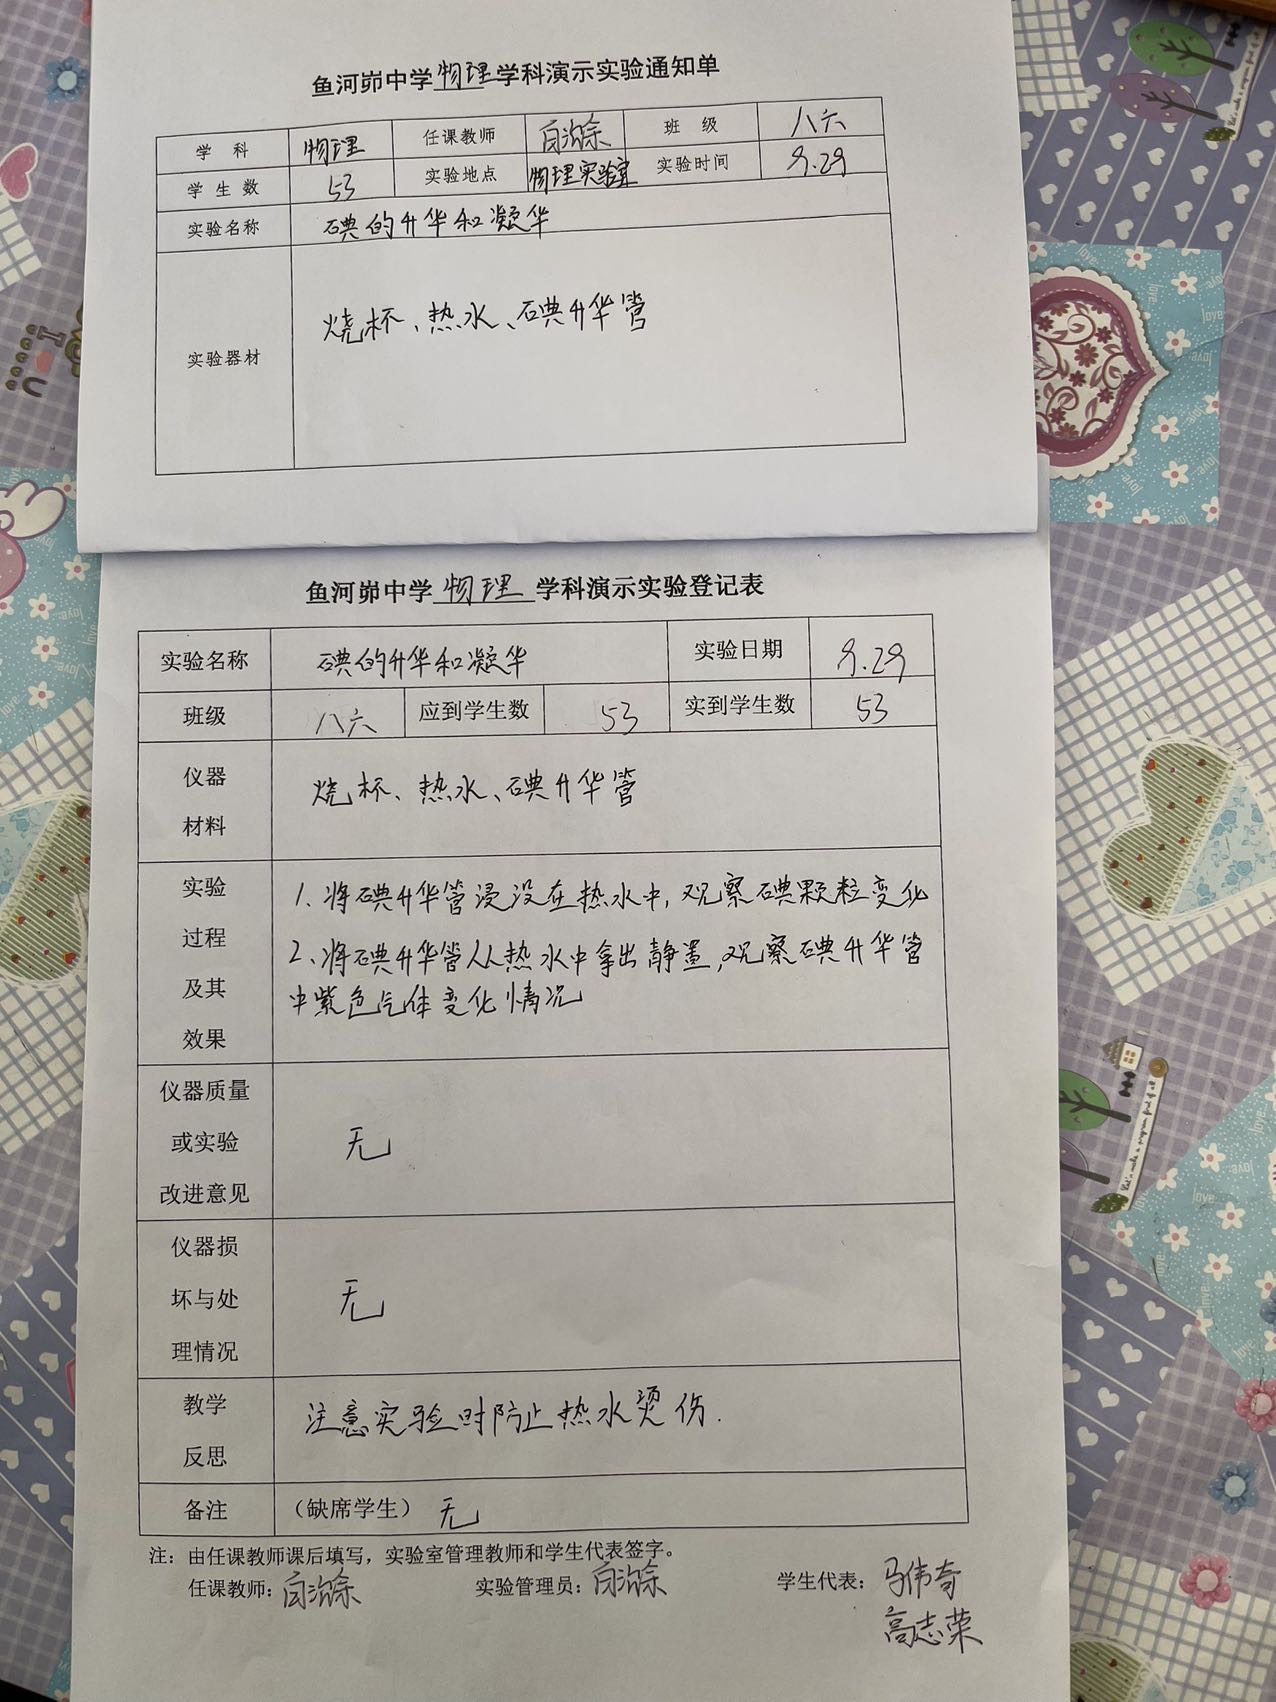 鱼河峁中学 物理 学科演示实验通知单
学 科 物理 任课教师 班 级 八六
学 生 数 53 实验地点 物理实验室 实验时间 9.29
实验名称 碘的升华和凝华
实验器材 烧杯、热水、碘升华管
鱼河峁中学 物理 学科演示实验登记表
实验名称 碘的升华和凝华 实验日期 9.29
班级 八六 应到学生数 53 实到学生数 53
仪器
材料
烧杯、热水、碘升华管
实验
过程
及其
效果
1、将碘升华管浸没在热水中,观察碘颗粒变化
2、将碘升华管从热水中拿出静置,观察碘升华管
中紫色气体变化情况
仪器质量
或实验
改进意见
无
仪器损
坏与处
理情况
无
教学
反思
注意实验时防止热水烫伤.
备注 (缺席学生) 无
注：由任课教师课后填写，实验室管理教师和学生代表签字。
任课教师: 实验管理员: 学生代表: 马伟奇
高志荣